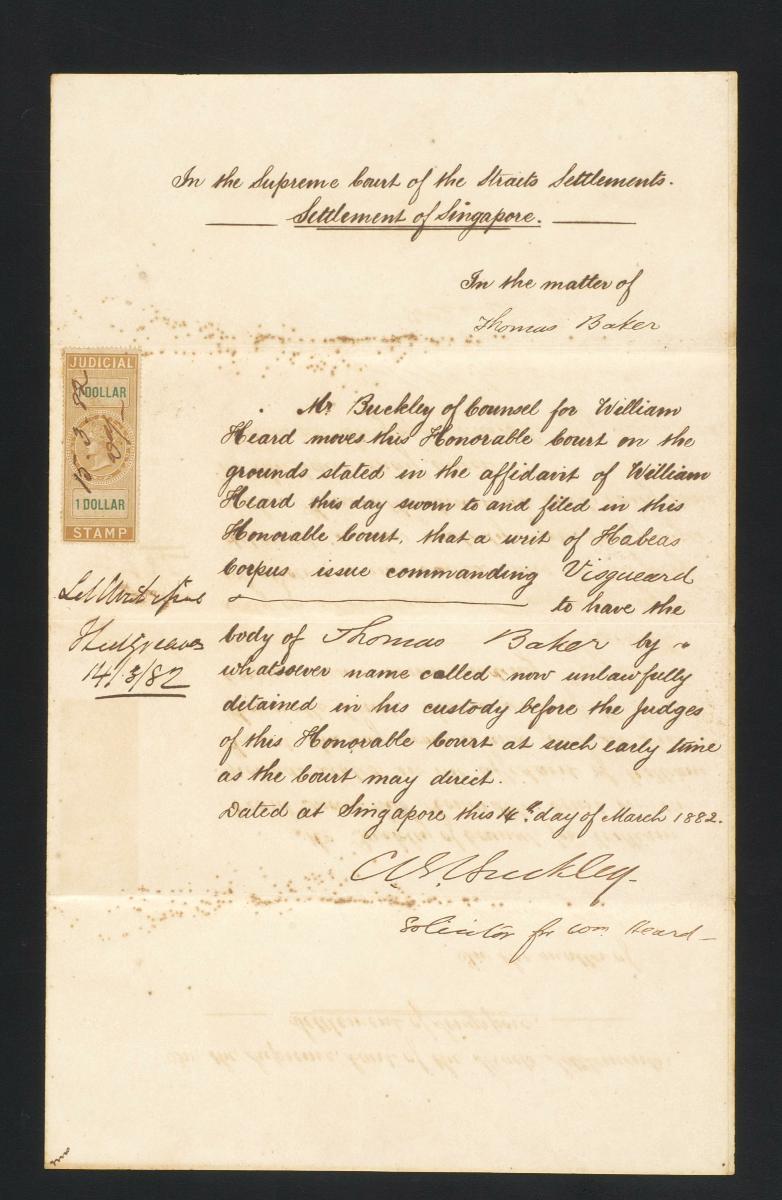 In the Supreme Court of the Straits Settlements.
Settlement of Singapore.
In the matter of
Thomas Baker
JUDICIAL
1 DOLLAR
15.3.82
1 DOLLAR
STAMP
Mr Buckley of Counsel for William
Heard moves this Honorable Court on the
grounds stated in the affidavit of William
Heard this day sworn to and filed in this
Honorable Court, that a writ of Habeas
Corpus issue commanding Visgueard
to have the
body of Thomas Baker by
whatsoever name called now unlawfully
detained in his custody before the Judges
of this Honorable Court at such early time
as the Court may direct.
Dated at Singapore this 14th day of March 1882.
14/3/82
C.B. Buckley
Solicitor for Wm Heard